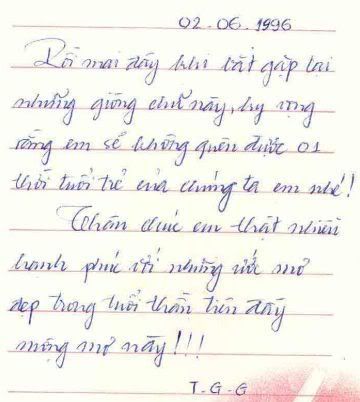 02.06.1996
Rồi mai đây khi bắt gặp lại
những giòng chữ này, hy vọng
rằng em sẽ không quên được 01
thời tuổi trẻ của chúng ta em nhé!
Thân chúc em thật nhiều
hạnh phúc với những ước mơ
đẹp trong tuổi thần tiên đầy
mộng mơ này!!!
T.G.G